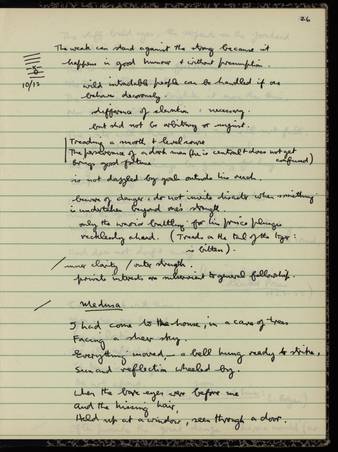 26
The weak can stand against the strong because it
happens in good humour & without presumption.
10/12
wild intractable people can be handled if one
behaves decorously
difference of elevation : necessary.
but did not be arbitrary or unjust.
Treading a smooth & level course
The perseverance of a dark man (he is central & does not get
brings good fortune confused)
is not dazzled by goals outside his reach.
beware of danger, do not invite disaster when something
is undertaken beyond one's strength
only the warrior battling for his prince plunges
recklessly ahead. (Treads on the tail of the tiger:
is bitten).
inner clarity / outer strength.
private interests are subservient to general fellowship.
Medusa
I had come to the house, in a cave of trees
Facing a sheer sky.
Everything moved, — a bell hung ready to strike,
Sun and reflection wheeled by.
When the bare eyes were before me
And the hissing hair,
Held up at a window, seen through a door.